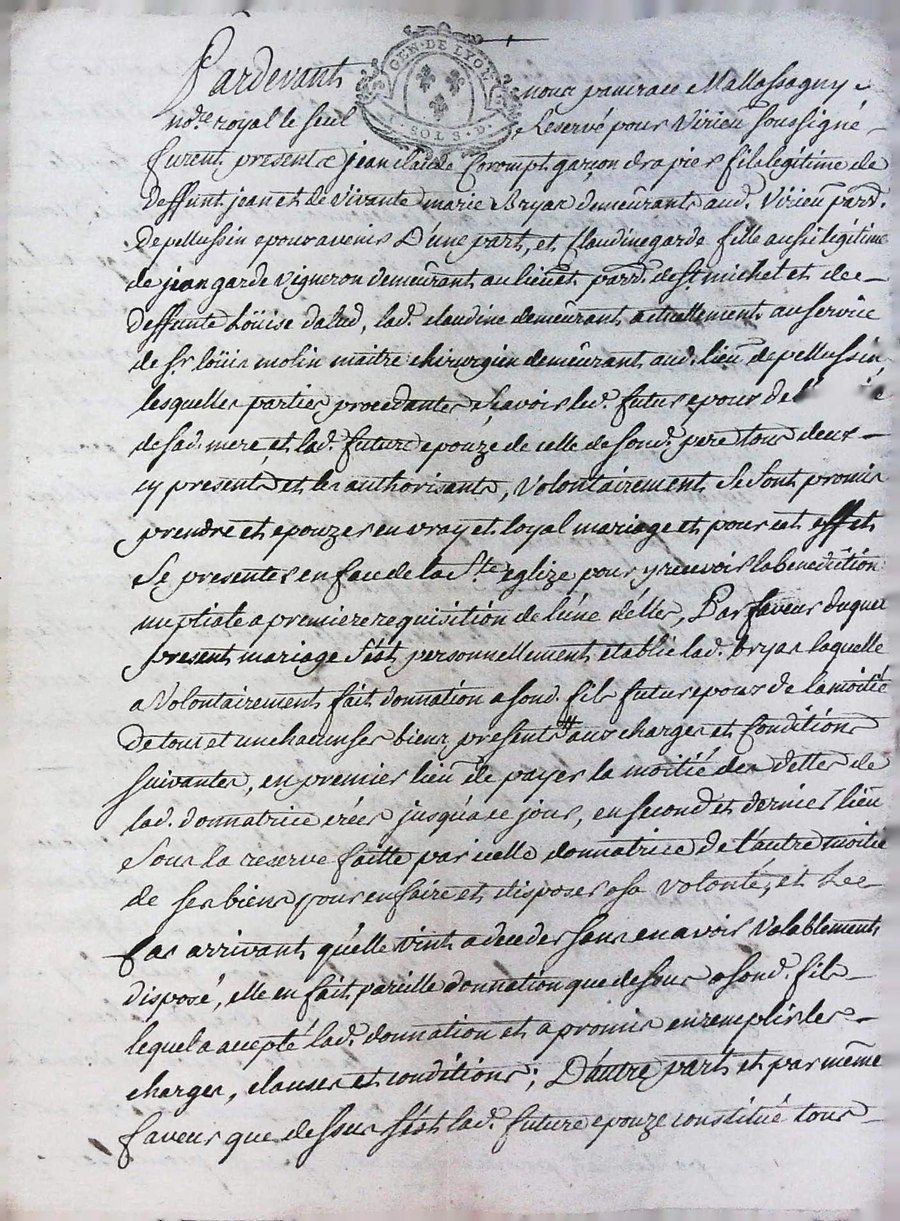 GEN. DE LYON
SOLS. D.
Pardevant nous pancrace Mallassagny
no.re royal le seul Reservé pour Virieu soussigné
furent presents jean claude Corompt garçon drapier fils legitime de
deffunt jean et de vivante marie Bryas demeurants aud. Virieu parr.
de pellussin epoux avenir D'une part, et Claudine garde fille aussi légitime
de jean garde vigneron demeurant au lieu et parr. de St michel et de
deffunte Loüise dalud, lad. claudine demeurant actuellement au service
de Sr loüis molin maitre chirurgien demeurant aud. lieu de pellussin
lesquelles parties procedantes sçavoir led. futur epoux de l
de sad. mere et lad. future epouze de celle de sond. pere tous deux
cy presents et les authorisants, volontairement se sont promis
prendre et epouzer en vray et loyal mariage et pour cet effet
se presenter en face de la Ste eglize pour y recevoir la benediction
nuptiale a premiere requisition de l'une d'elles, Par faveur duquel
present mariage s'est personnellement etablie lad. bryas laquelle
a volontairement fait donnation a sond. fils futur epoux de la moitié
de tous et un chacun ses biens presents aux charges et Conditions
suivantes, en premier lieu de payer la moitié des dettes de
lad. donnatrice créés jusqu'a ce jour, en second et dernier lieu
sous la reserve faitte par icelle donnatrice de l'autre moitié
de ses biens pour en faire et disposer a sa volonté, et Le
Cas arrivant qu'elle vint a deceder sans en avoir valablement
disposé, elle en fait pareille donnation que dessus a sond. fils
lequel a accepté lad. donnation et a promis en remplir les
charges, clauses et conditions; D'autre part et par même
faveur que dessus s'est lad. future epouze constitué tous